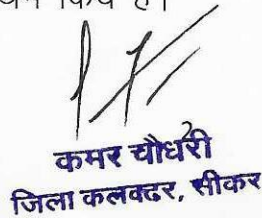 किये हैं।
कमर चौधरी
जिला कलक्टर, सीकर